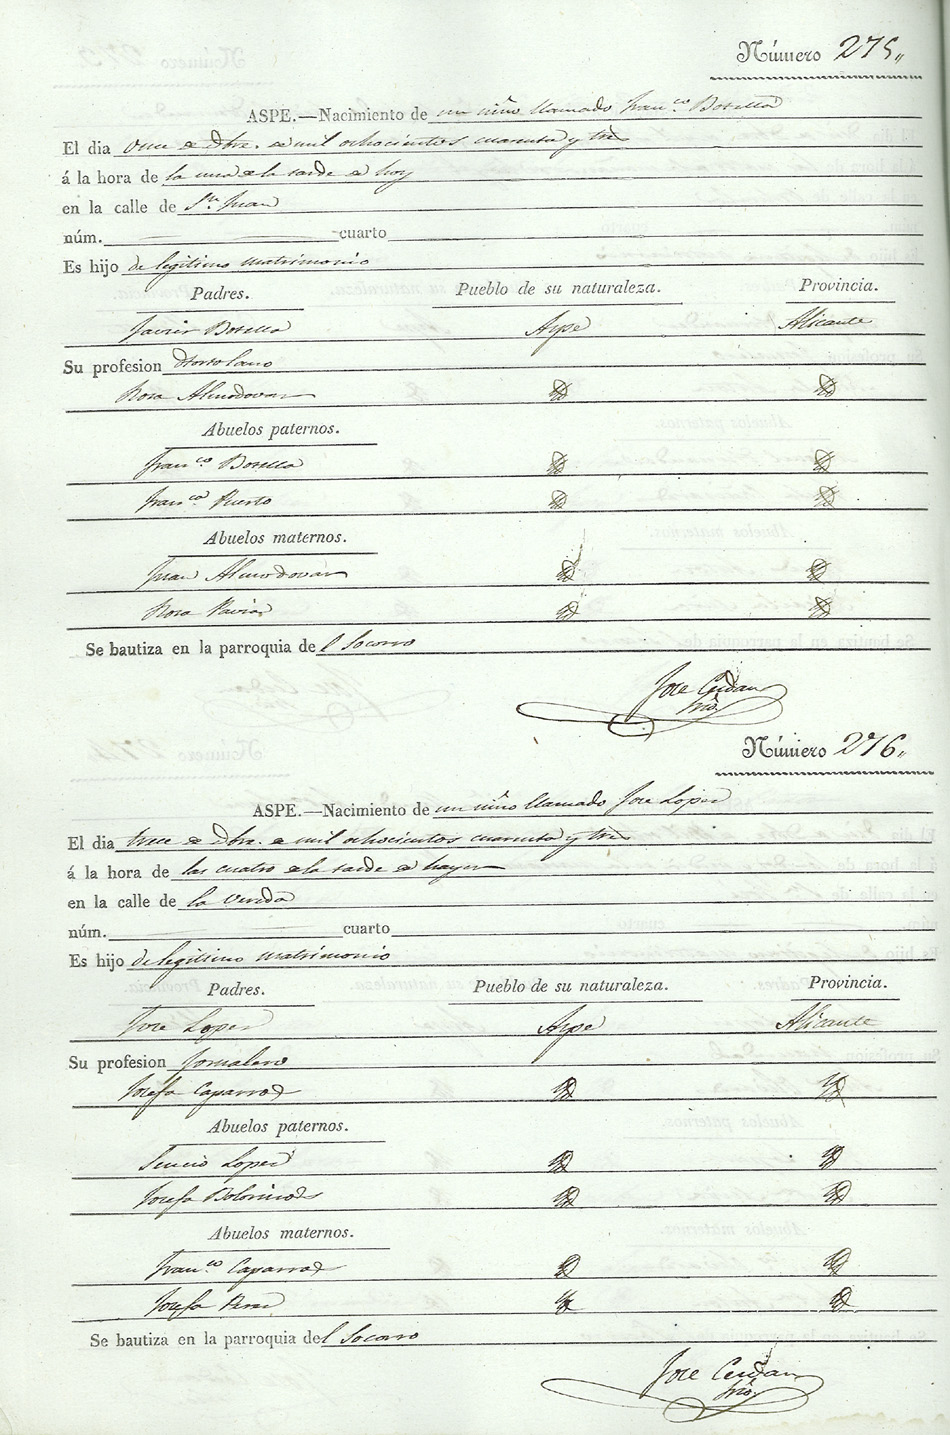 Número 275.,
ASPE.—Nacimiento de un niño llamado Fran.co Botella
El dia once de Dbre. de mil ochocientos cuarenta y tres
á la hora de la una de la tarde de hoy
en la calle de Sn. Juan
núm. cuarto
Es hijo de legitimo matrimonio
Padres. Pueblo de su naturaleza. Provincia.
Javier Botella Aspe Alicante
Su profesion Hortolano
Rosa Almodovar
Abuelos paternos.
Fran.co Botella
Fran.ca Puerto
Abuelos maternos.
Juan Almodovar
Rosa
Se bautiza en la parroquia del Socorro
Jose Cerdan
Srio.
Número 276.,
ASPE.—Nacimiento de un niño llamado Jose Lopez
El dia trece de Dbre. de mil ochocientos cuarenta y tres
á la hora de las cuatro de la tarde de hayer
en la calle de la Vereda
núm. cuarto
Es hijo de legitimo matrimonio
Padres. Pueblo de su naturaleza. Provincia.
Jose Lopez Aspe Alicante
Su profesion Jornalero
Josefa Caparros
Abuelos paternos.
Lopez
Josefa
Abuelos maternos.
Fran.co Caparros
Josefa Perez
Se bautiza en la parroquia del Socorro
Jose Cerdan
Srio.